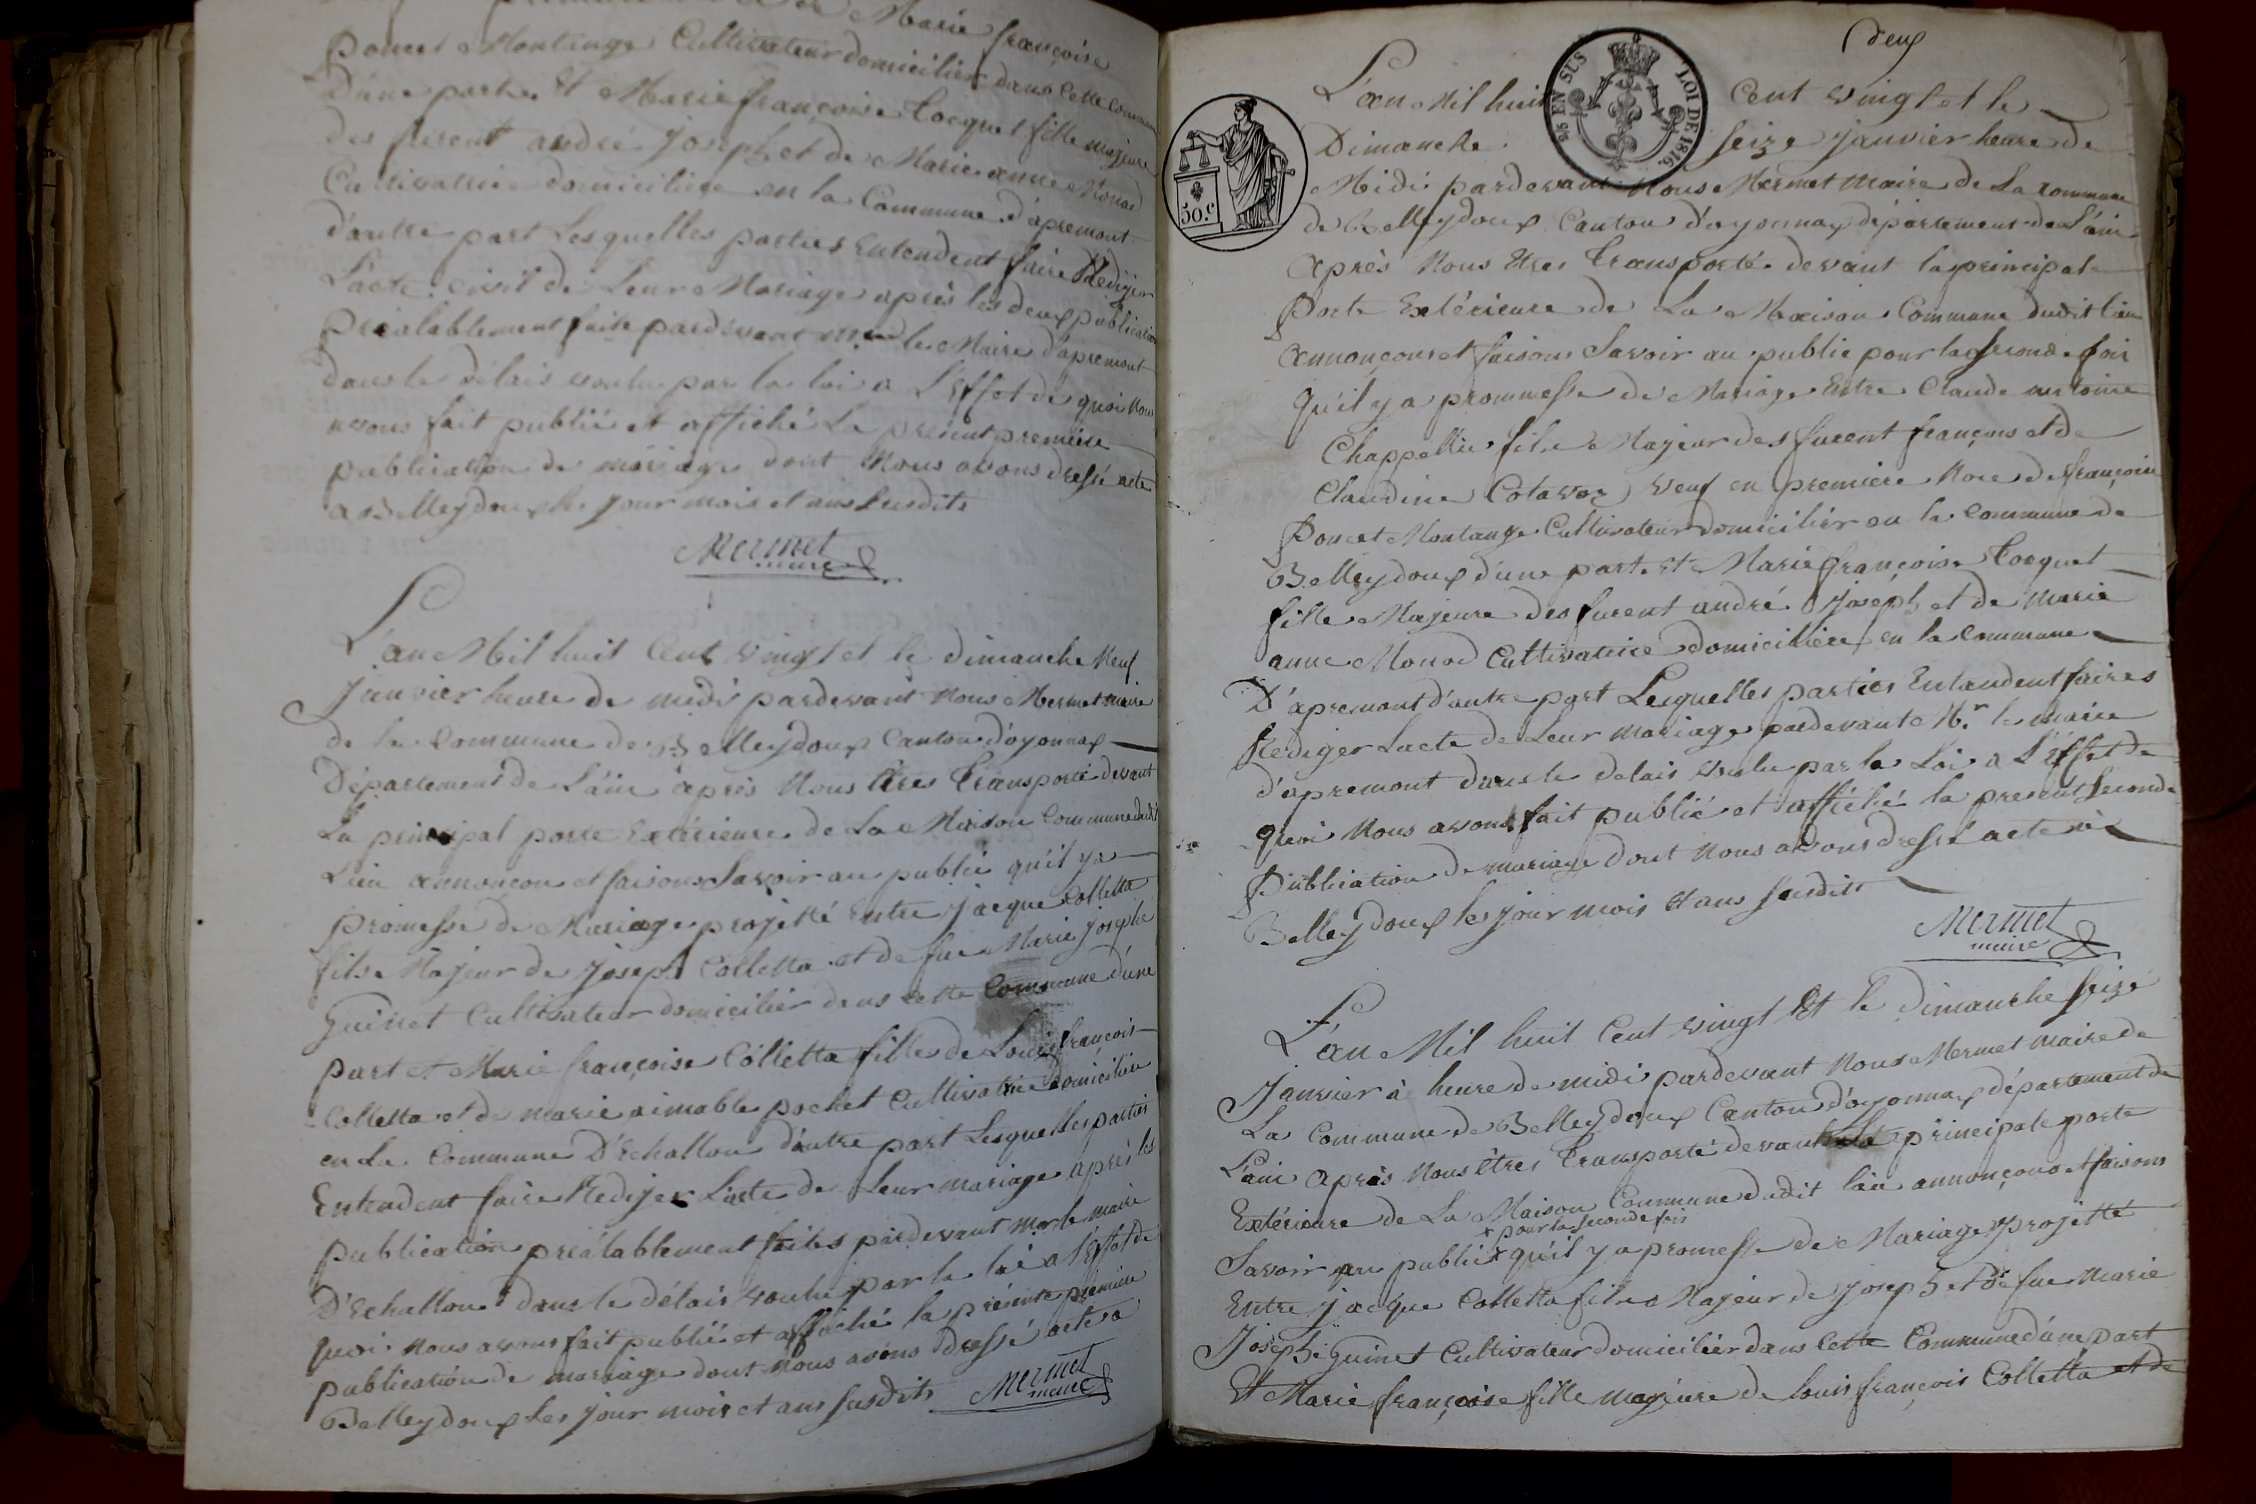 Marie françoise
Poncet Montange Cultivateur domicilier dans Cette Commune
D'une part. Et Marie françoise Tocquet fille majeure
des furent andré Joseph et de Marie anne Monod
Cultivatrice domiciliere en la Commune d'apremont
d'autre part Lesquelles parties Entendent faire Rediger
L'acte Civil de Leur Mariage après les deux publication
préalablement faite pardevant Mr le Maire d'apremont
dans le délais voulu par la loi a L'Effet de quoi Nous
avons fait publié et affiché La present première
publication de mariage dont Nous avons dressé acte
a Belleydoux les jour mois et ans susdits
Mermet
maire
L'an Mil huit Cent vingt et le dimanche Neuf
Janvier heure de midi pardevant Nous Mermet maire
de la Commune de Belleydoux Canton d'oyonnax
Département de L'ain après Nous êtres Transporté devant
La principal porte Extérieure de La Maison Commune dudit
Lieu annonçon et faisons Savoir au public qu'il y a
promesse de Mariage projetté Entre Jacque Colletta
fils Majeur de Joseph Colletta et de fue Marie Josephe
Guinet Cultivateur domicilier dans cette Commune d'une
part et Marie françoise Colletta fille de Louis françois
Colletta et de marie aimable pochet Cultivatrice domicilière
en La Commune D'Echallon d'autre part Lesquelles parties
Entendent faire Rediger L'acte de Leur mariage après les
publication préalablement faites pardevant Mr le maire
D'Echallon dans le délais voulu par la loi a l'Effet de
quoi Nous avons fait publié et affiché la présente première
publication de mariage dont Nous avons dressé acte a
Belleydoux les jour mois et ans susdits Mermet
maire
deux
L'an Mil huit Cent vingt et le
EN SUS LOI DE 1816.
50.c
Dimanche seize Janvier heure de
Midi pardevant Nous Mermet Maire de La Commune
de Belleydoux Canton d'oyonnax département de L'ain
Après Nous Etres Transporté devant la principal
Porte Extérieure de La Maison Commune dudit Lieu
Annonçons et faisons Savoir au public pour la seconde fois
Qu'il y a prommesse de Mariage Entre Claude antoine
Chappellu fils Majeur des furent françois et de
Claudine Cotavoz veuf en première Noce de françoise
Poncet Montange Cultivateur domicilier en la Commune de
Belleydoux d'une part. Et Marie françoise Tocquet
fille Majeure des furent andré Joseph et de Marie
anne Monod Cultivatrice domicilière en la Commune
D'apremont d'autre part Lesquelles parties Entendent faires
Rediger Lacte de Leur mariage pardevant Mr le maire
d'apremont dans le delais voulu par la Loi a L'Effet de
quoi Nous avons fait publié et affiché la present seconde
Publication de mariage dont Nous avons dressé acte à
Belleydoux les jour mois Et ans susdits
Mermet
maire
L'an Mil huit Cent vingt Et le Dimanche seize
Janvier à heure de midi pardevant Nous Mermet Maire de
La Commune de Belleydoux Canton d'oyonnax département de
L'ain Après Nous êtres Transporté devant La principale porte
Extérieure de La Maison Commune dudit lieu annonçons et faisons
x pour la seconde fois
Savoir au public x qu'il y a promesse de Mariage projetté
Entre Jacque Colletta fils Majeur de Joseph et de fue Marie
Josephe Guinet Cultivateur domicilier dans Cette Commune d'une part
Et Marie françoise fille majeure de Louis françois Colletta et de